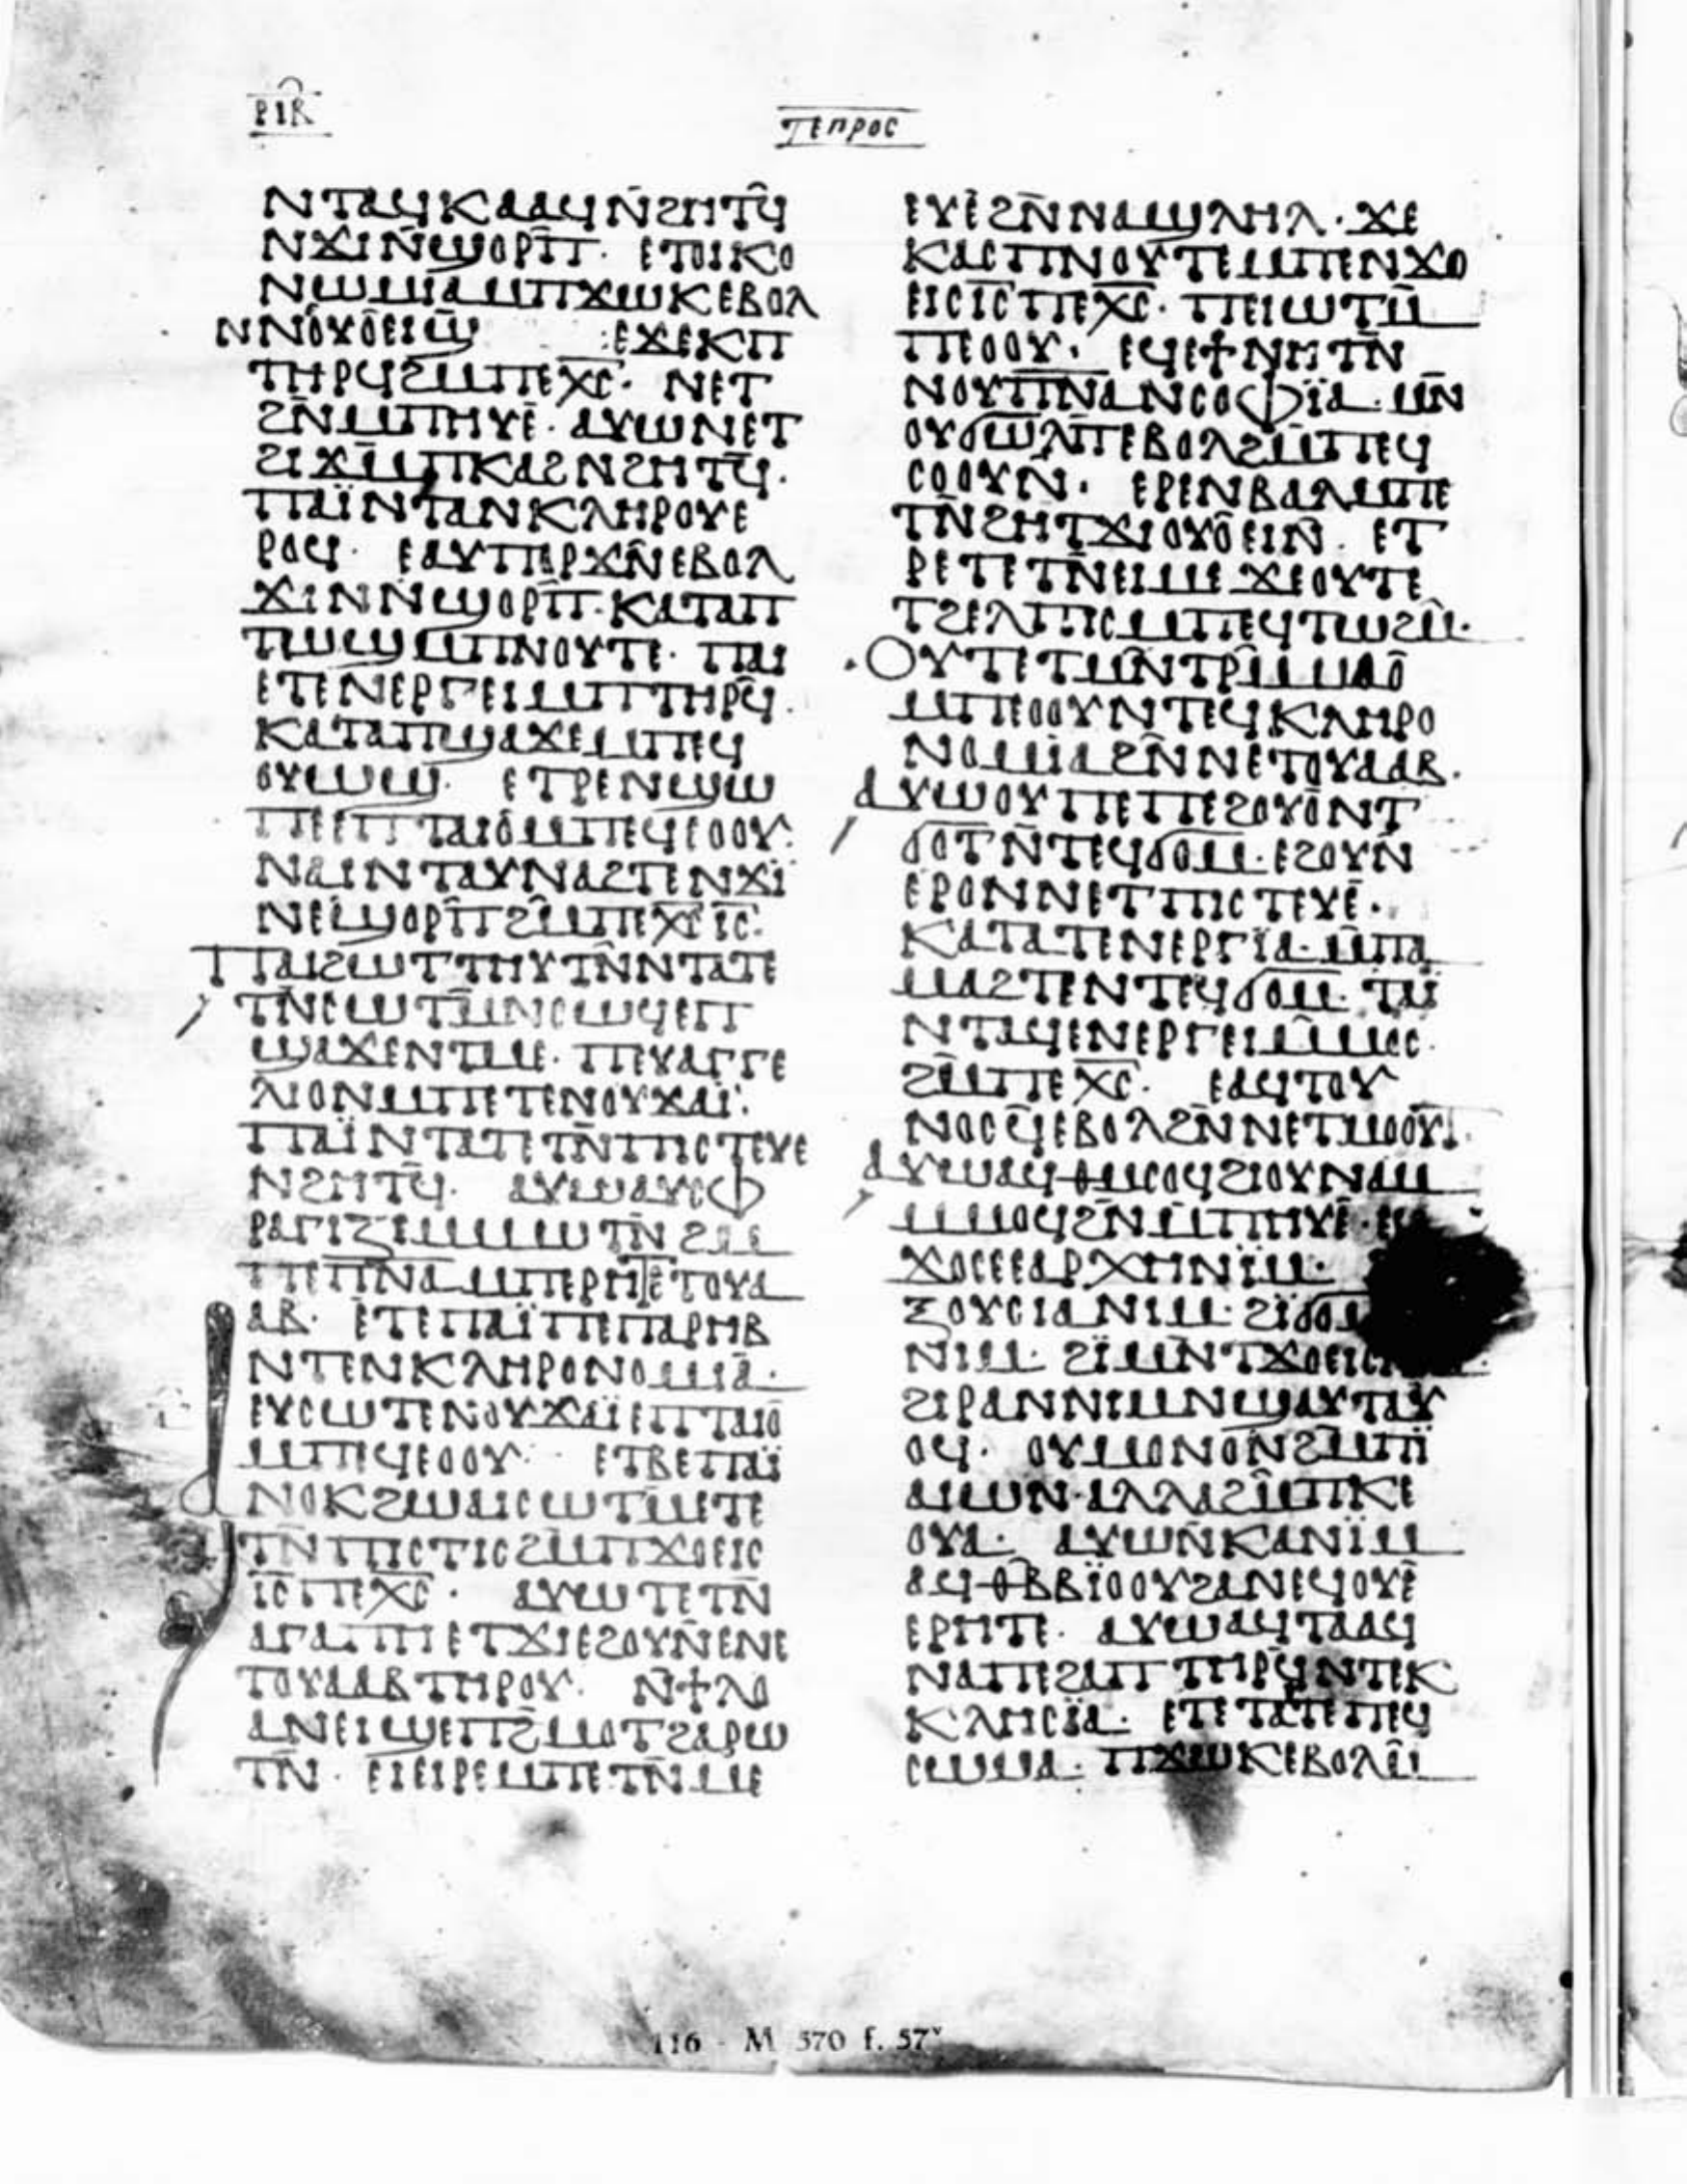 ⲣⲓⲃ
ⲧⲉⲡⲣⲟⲥ
ⲛⲧⲁϥⲕⲁⲁϥⲛ̄ϩⲏⲧϥ̄
ⲛϫⲓⲛ̄ϣⲟⲣⲡ̄· ⲉⲧⲟⲓⲕⲟ
ⲛⲱⲙⲓⲁⲙⲡϫⲱⲕⲉⲃⲟⲗ
ⲛⲛⲟⲩⲟⲉⲓϣ ⲉϫⲉⲕⲡ
ⲧⲏⲣϥϩⲙⲡⲉⲭ̄ⲥ̄· ⲛⲉⲧ
ϩⲛ̄ⲙⲡⲏⲩⲉ· ⲁⲩⲱⲛⲉⲧ
ϩⲓϫⲙ̄ⲡⲕⲁϩⲛϩⲏⲧϥ̄·
ⲡⲁⲓ̈ⲛⲧⲁⲛⲕⲗⲏⲣⲟⲩⲉ
ⲣⲟϥ· ⲉⲁⲩⲡⲟⲣϫⲛ̄ⲉⲃⲟⲗ
ϫⲓⲛⲛ̄ϣⲟⲣⲡ̄·ⲕⲁⲧⲁⲡ
ⲧⲱϣⲙⲡⲛⲟⲩⲧⲉ· ⲡⲁⲓ
ⲉⲧⲉⲛⲉⲣⲅⲉⲓⲙⲡⲧⲏⲣϥ̄·
ⲕⲁⲧⲁⲡϣⲁϫⲉⲙⲡⲉϥ
ⲟⲩⲱϣ· ⲉⲧⲣⲉⲛϣⲱ
ⲡⲉⲉⲡⲧⲁⲓⲟⲙⲡⲉϥⲉⲟⲟⲩ·
ⲛⲁⲓⲛⲧⲁⲩⲛⲁϩⲧⲉⲛϫⲓ̈
ⲛⲉϣⲟⲣⲡ̄ϩⲙ̄ⲡⲉⲭ̄ⲥ̄ⲓ̄ⲥ̄·
ⲡⲁⲓϩⲱⲧⲧⲏⲩⲧⲛ̄ⲛⲧⲁⲧⲉ
ⲧⲛ̄ⲥⲱⲧⲙ̄ⲛⲥⲱϥⲉⲡ
ϣⲁϫⲉⲛⲧⲙⲉ· ⲡⲉⲩⲁⲅⲅⲉ
ⲗⲓⲟⲛⲙⲡⲉⲧⲉⲛⲟⲩϫⲁⲓ̈·
ⲡⲁⲓ̈ⲛⲧⲁⲧⲉⲧⲛ̄ⲡⲓⲥⲧⲉⲩⲉ
ⲛϩⲏⲧϥ̄· ⲁⲩⲱⲁⲩⲥⲫ
ⲣⲁⲅⲓⲍⲉⲙⲙⲱⲧⲛ̄ϩⲙ
ⲡⲉⲡ̄ⲛ̄ⲁ̄ⲙⲡⲉⲣⲏⲧⲉⲧⲟⲩⲁ
ⲁⲃ· ⲉⲧⲉⲡⲁⲓ̈ⲡⲉⲡⲁⲣⲏⲃ
ⲛⲧⲉⲛⲕⲗⲏⲣⲟⲛⲟⲙⲓⲁ·
ⲉⲩⲥⲱⲧⲉⲛⲟⲩϫⲁⲓ̈ⲉⲡⲧⲁⲓⲟ
ⲙⲡⲉϥⲉⲟⲟⲩ· ⲉⲧⲃⲉⲡⲁⲓ̈
ⲁⲛⲟⲕϩⲱⲁⲓⲥⲱⲧⲙ̄ⲉⲧⲉ
ⲧⲛ̄ⲡⲓⲥⲧⲓⲥϩⲙⲡϫⲟⲉⲓⲥ
ⲓ̄ⲥ̄ⲡⲉⲭ̄ⲥ̄· ⲁⲩⲱⲧⲉⲧⲛ̄
ⲁⲅⲁⲡⲏⲉⲧϫⲓⲉϩⲟⲩⲛ̄ⲉⲛⲉ
ⲧⲟⲩⲁⲁⲃⲧⲏⲣⲟⲩ· ⲛ̄ϯⲗⲟ
ⲁⲛⲉⲓϣⲉⲡϩⲙⲟⲧϩⲁⲣⲱ
ⲧⲛ̄· ⲉⲓⲉⲓⲣⲉⲙⲡⲉⲧⲛ̄ⲙⲉ
ⲉⲩⲉϩⲛ̄ⲛⲁϣⲗⲏⲗ· ϫⲉ
ⲕⲁⲥⲡⲛⲟⲩⲧⲉⲙⲡⲉⲛϫⲟ
ⲉⲓⲥⲓ̄ⲥ̄ⲡⲉⲭ̄ⲥ̄· ⲡⲉⲓⲱⲧⲙ̄
ⲡⲉⲟⲟⲩ· ⲉϥⲉϯⲛⲏⲧⲛ̄
ⲛⲟⲩⲡ̄ⲛ̄ⲁ̄ⲛⲥⲟⲫⲓ̈ⲁ·ⲙⲛ̄
ⲟⲩϭⲱⲗⲡⲉⲃⲟⲗϩⲙ̄ⲡⲉϥ
ⲥⲟⲟⲩⲛ̄· ⲉⲣⲉⲛⲃⲁⲗⲙⲡⲉ
ⲧⲛ̄ϩⲏⲧϫⲓⲟⲩⲟⲉⲓⲛ̄· ⲉⲧ
ⲣⲉⲧⲉⲧⲛ̄ⲉⲓⲙⲉϫⲉⲟⲩⲧⲉ
ⲧϩⲉⲗⲡⲓⲥⲙⲡⲉϥⲧⲱϩⲙ̄·
ⲟⲩⲧⲉⲧⲙⲛ̄ⲧⲣⲙ̄ⲙⲁⲟ
ⲙⲡⲉⲟⲟⲩⲛⲧⲉϥⲕⲗⲏⲣⲟ
ⲛⲟⲙⲓⲁϩⲛ̄ⲛⲉⲧⲟⲩⲁⲁⲃ·
ⲁⲩⲱⲟⲩⲡⲉⲡⲉϩⲟⲩⲟⲛⲧ
ϭⲟⲧⲛ̄ⲧⲉϥϭⲟⲙ·ⲉϩⲟⲩⲛ
ⲉⲣⲟⲛⲛⲉⲧⲡⲓⲥⲧⲉⲩⲉ·
ⲕⲁⲧⲁⲧⲉⲛⲉⲣⲅⲓⲁ·ⲙ̄ⲡⲁ
ⲙⲁϩⲧⲉⲛⲧⲉϥϭⲟⲙ· ⲧⲁⲓ̈
ⲛⲧⲁϥⲉⲛⲉⲣⲅⲉⲓⲙ̄ⲙⲟⲥ·
ϩⲙ̄ⲡⲉⲭ̄ⲥ̄· ⲉⲁϥⲧⲟⲩ
ⲛⲟⲥϥ̄ⲉⲃⲟⲗϩⲛ̄ⲛⲉⲧⲙⲟⲟⲩⲧ·
ⲁⲩⲱⲁϥⲑⲙⲥⲟϥϩⲓⲟⲩⲛⲁⲙ
ⲙⲙⲟϥϩⲛ̄ⲙⲡⲏⲩⲉ·
ϫⲟⲥⲉⲉⲁⲣⲭⲏⲛⲓⲙ·
ⲝⲟⲩⲥⲓⲁⲛⲓⲙ· ϩⲓϭⲟⲙ
ⲛⲓⲙ· ϩⲓⲙⲛⲧϫⲟⲉⲓⲥ
ϩⲓⲣⲁⲛⲛⲓⲙⲛϣⲁⲩⲧⲁⲩ
ⲟϥ· ⲟⲩⲙⲟⲛⲟⲛϩⲙⲡⲓ̈
ⲁⲓⲱⲛ·ⲁⲗⲗⲁϩⲙ̄ⲡⲕⲉ
ⲟⲩⲁ· ⲁⲩⲱⲛ̄ⲕⲁⲛⲓⲙ
ⲁϥⲑⲃⲃⲓ̈ⲟⲟⲩϩⲁⲛⲉϥⲟⲩⲉ
ⲉⲣⲏⲧⲉ· ⲁⲩⲱⲁϥⲧⲁⲁϥ
ⲛⲁⲡⲉϩⲁⲡⲧⲏⲣϥⲛⲧⲉⲕ
ⲕⲗⲏⲥⲓ̈ⲁ· ⲉⲧⲉⲧⲁⲧⲉⲡⲉϥ
ⲥⲱⲙⲁ· ⲡϫⲱⲕⲉⲃⲟⲗⲙ̄
116 - M 570 f. 57ᵛ